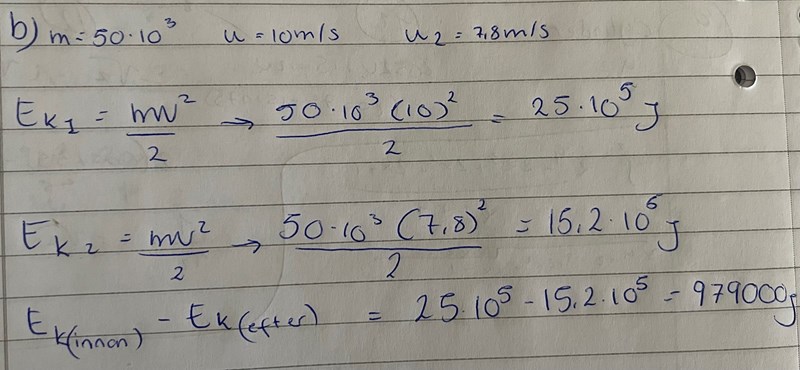 b) m = 50·10³ u = 10m/s u₂ = 7,8m/s
E_K1 = mv²/2 → 50·10³ (10)²/2 = 25·10⁵ J
E_K2 = mv²/2 → 50·10³ (7,8)²/2 = 15,2·10⁶ J
E_K(innan) - E_K(efter) = 25·10⁵ - 15,2·10⁵ = 979000J